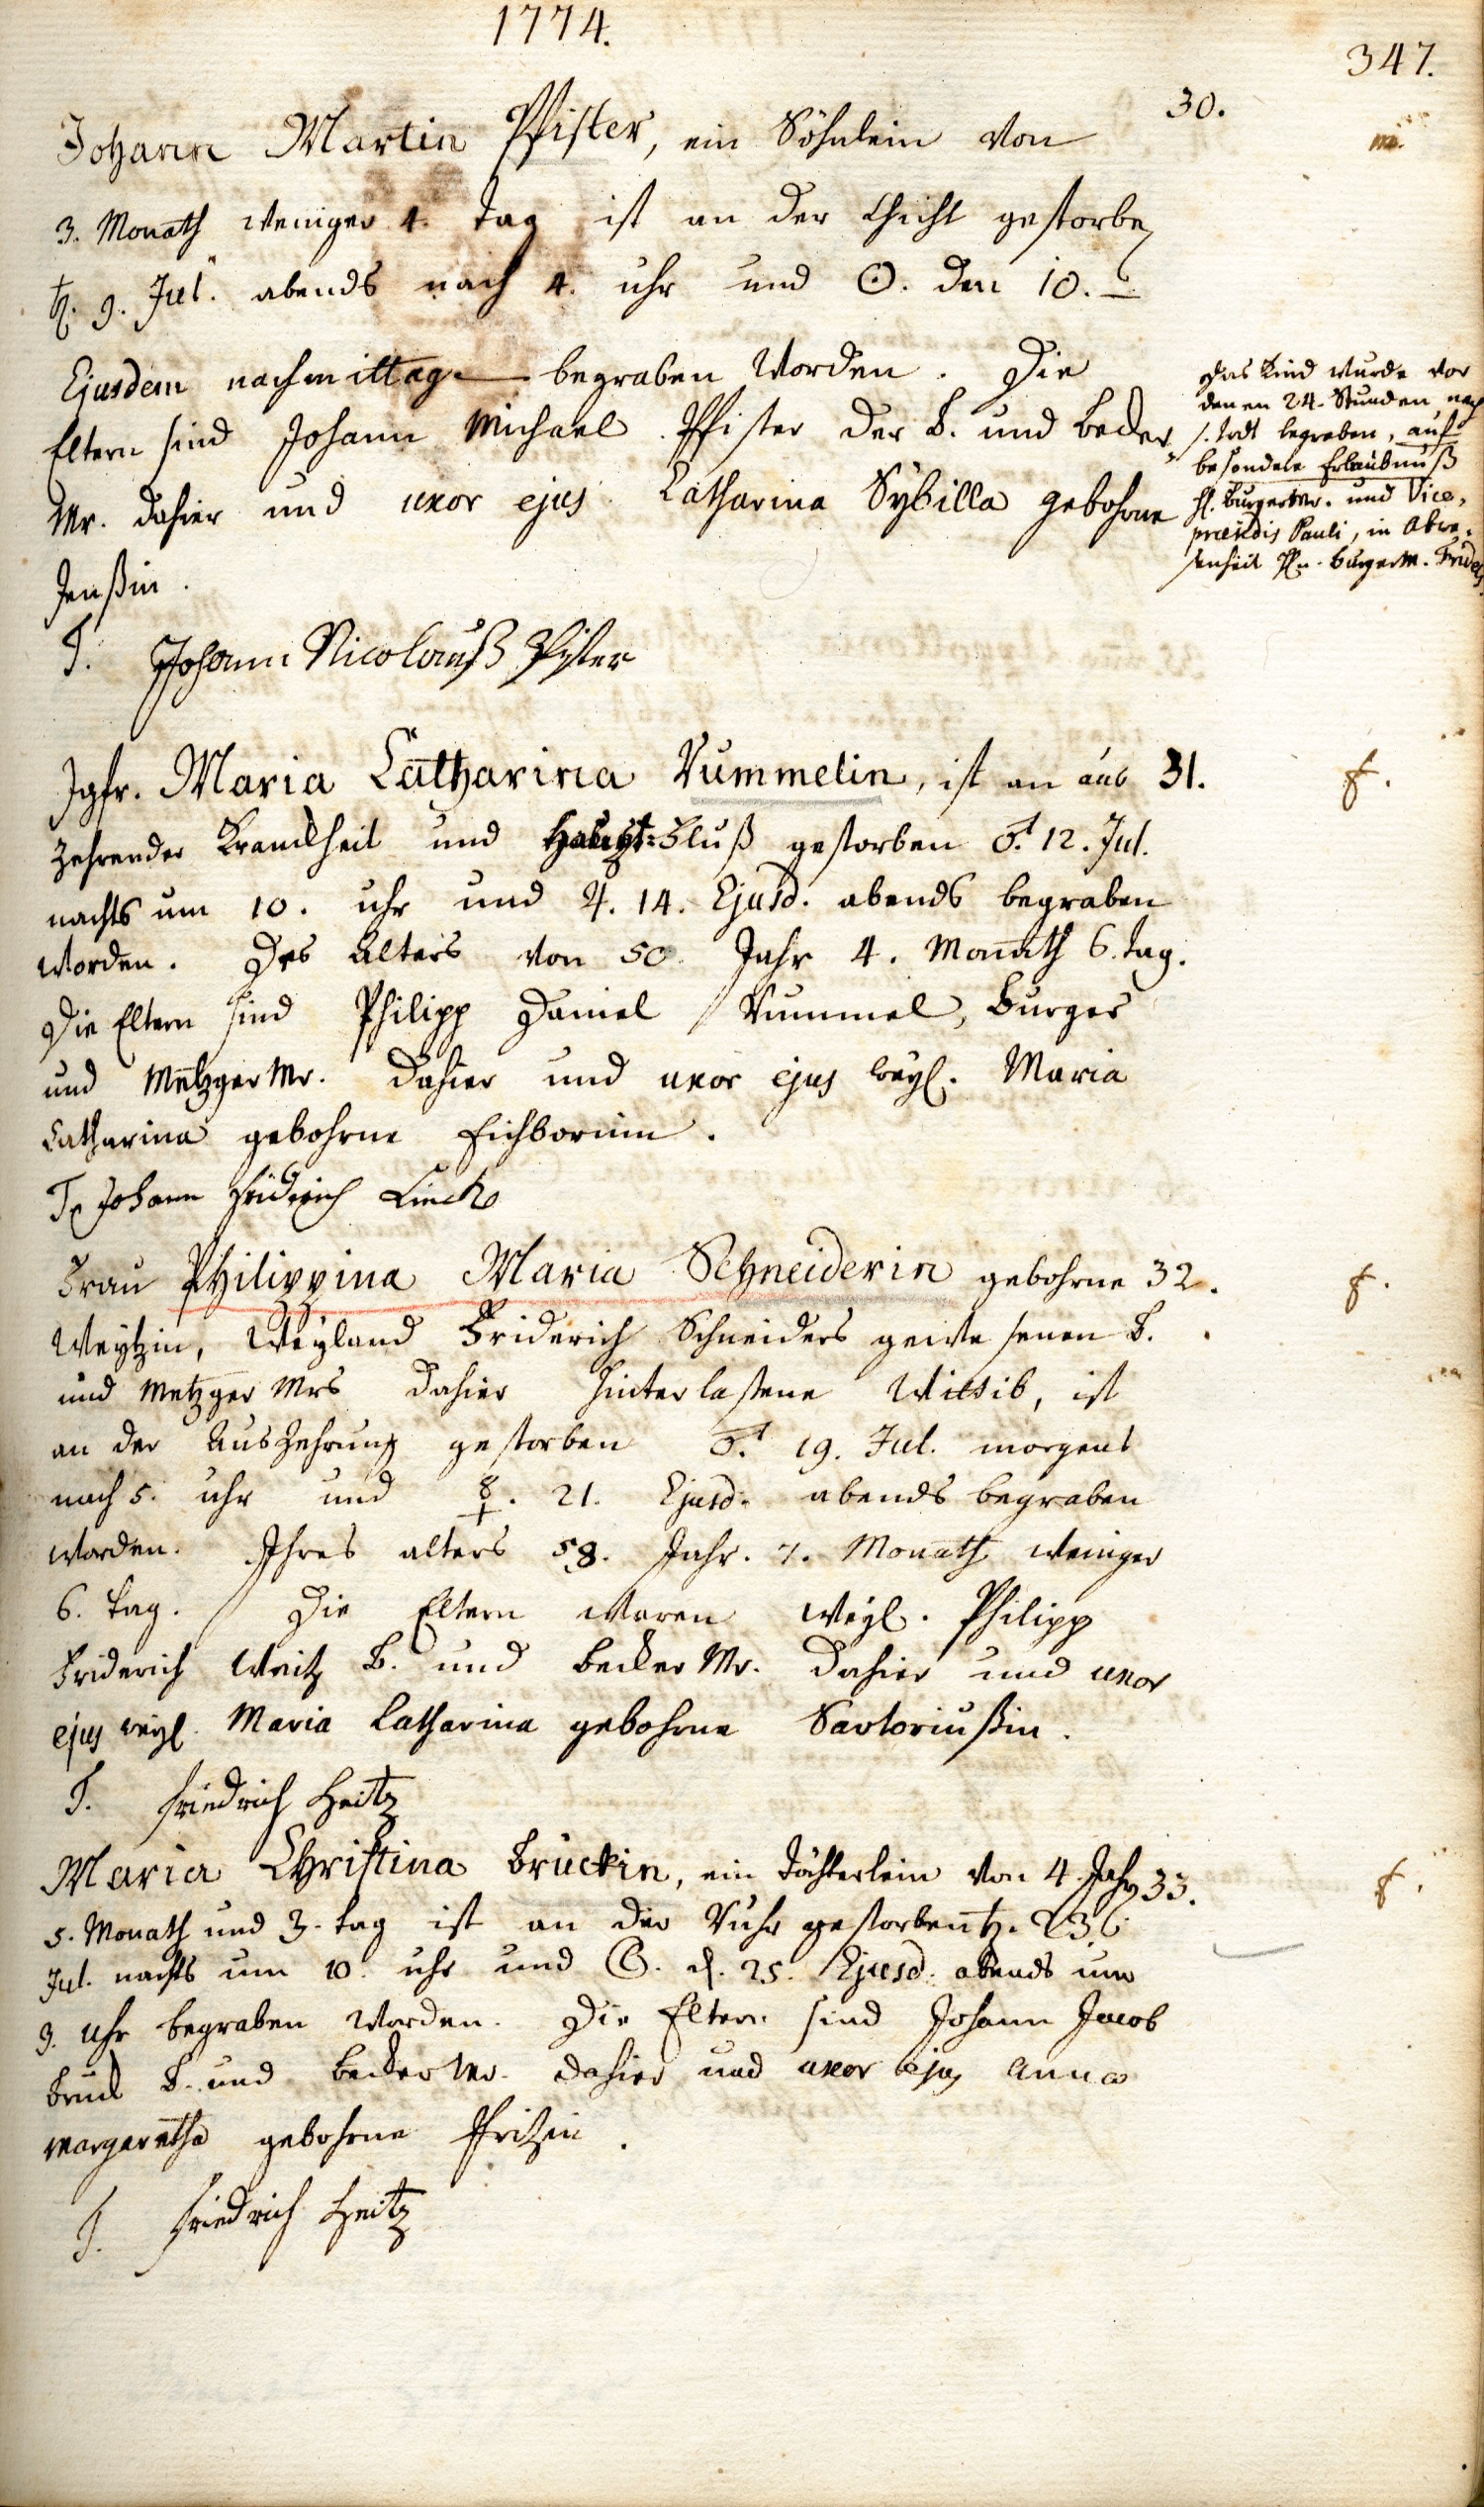 1774.
347.
30.
m.
Johann Martin Pfister, ein Söhnlein von
3. Monath weniger 4. tag ist an der Gicht gestorben
♄. 9. Jul. abends nach 4. uhr und ☉. den 10.
Ejusdem nachmittag begraben worden. Die
Eltern sind Johann Michael Pfister der B. und Becker
Mr. dahier und uxor ejus Catharina Sybilla gebohrne
Jenßin.
T. Johann Nicolauß Pfister
das Kind wurde vor
denen 24. Stunden nach
s. todt begraben, auf
besondere Erlaubnuß
H. Burgermr. und Vice-
præsidis Pauli, in Abwe-
senheit Hn. Burgerm.
Jgfr. Maria Catharina Rummelin, ist an aus 31.
f.
zehrender Kranckheit und Haupt-Fluß gestorben ♂. 12. Jul.
nachts um 10. uhr und ♃. 14. Ejusd. abends begraben
worden. Des alters von 50. Jahr 4. Monath 6. tag.
Die Eltern sind Philipp Daniel Rummel, Burger
und MetzgerMr. dahier und uxor ejus weyl. Maria
Catharina gebohrne Eichbornin.
T. Johann Fridrich Linck
Frau Philippina Maria Schneiderin gebohrne 32.
f.
Weytzin, weyland Friderich Schneiders gewesenen B.
und Metzger Mrs dahier hinterlaßene Wittib, ist
an der Auszehrung gestorben ♂. 19. Jul. morgens
nach 5. uhr und 21. Ejusd. abends begraben
worden. Ihres alters 58. Jahr. 7. Monath weniger
6. tag. Die Eltern waren weyl. Philipp
Friderich Weitz B. und Becker Mr. dahier und uxor
ejus weyl. Maria Catharina gebohrne Sartoriußin.
T. Friedrich Heitz
Maria Christina Bruckin, ein Töchterlein von 4. Jahr 33.
f.
5. Monath und 3. tag ist an der Ruhr gestorben ♄. 23.
Jul. nachts um 10. uhr und d. 25. Ejusd. abends um
3. uhr begraben worden. Die Eltern sind Johann Jacob
Bruck B. und Becker Mr. dahier und uxor ejus Anna
Margaretha gebohrne Pfritzin.
T. Friedrich Heitz